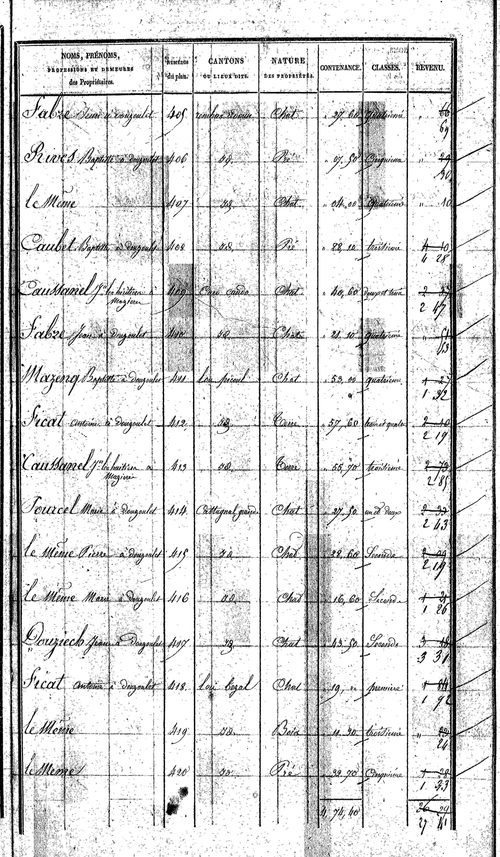 NOMS, PRÉNOMS, PROFESSIONS ET DEMEURES des Propriétaires. | Numéros du plan. | CANTONS OU LIEUX DITS. | NATURE DES PROPRIÉTÉS. | CONTENANCE. | CLASSES. | REVENU.
Fabre Jean à douzoulet 405 Chat 27,60 quatrième " 66 69
Rives Baptiste à douzoulet 406 id. Pré 07,50 Cinquième " 29 30
le Même 407 id. Chat 04,00 quatrième " 10
Caubet Baptiste à douzoulet 408 id. Pré 28,10 troisième 4 10 4 28
Caussanel Jn les héritiers à Mazieres 409 Chat 40,60 2 47
Fabre Jean à douzoulet 410 id. Chat 21,10 quatrième " 51 53
Mazenq Baptiste à douzoulet 411 Chat 53,00 quatrième 1 27 1 32
Ficat antoine à douzoulet 412 id. Terre 57,60 2 10 2 19
Caussanel Jn les héritiers à Mazieres 413 id. Terre 55,70 troisième 2 73 2 85
Fourcel Marie à douzoulet 414 Chat 27,50 un et deux 2 33 2 43
le Même Pierre à douzoulet 415 id. Chat 28,60 Seconde 2 09 2 19
le Même Marie à douzoulet 416 id. Chat 16,60 Seconde 1 21 1 26
Douziech Jean à Douzoulet 417 id. Chat 43,50 Seconde 3 18 3 31
Ficat antoine à douzoulet 418 Chat 19, " première 1 84 1 92
le Même 419 id. Bois 11,30 troisième " 23 24
le Même 420 id. Pré 33,70 Cinquième 1 28 1 33
4,74,40 27 41